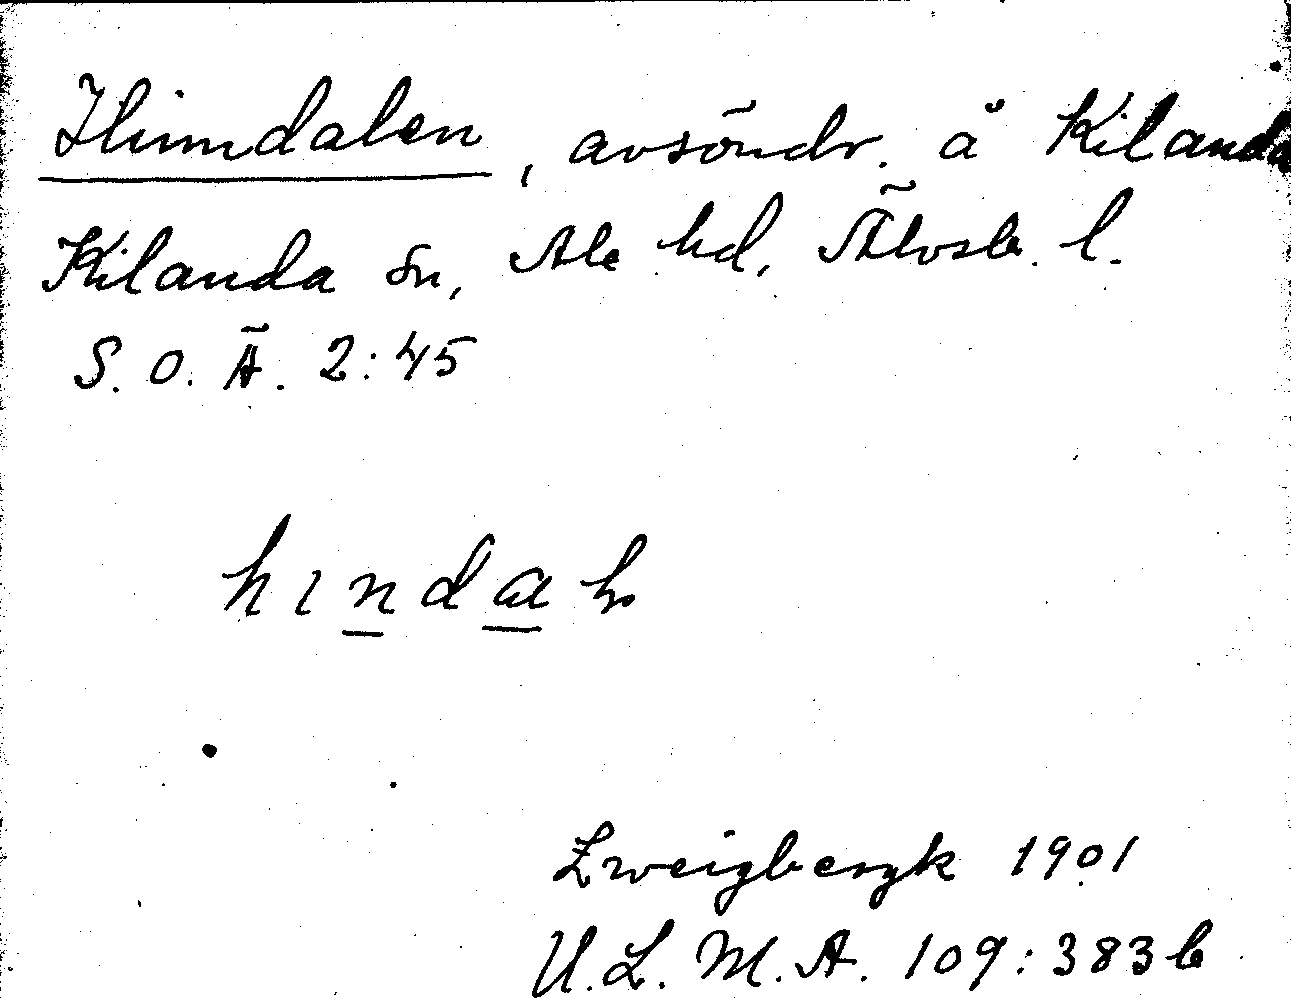 Himdalen, avsöndr. å Kilanda
Kilanda sn, Ale hd, Älvsb. l.
S. O. Ä. 2:45
hındaḷ
Zweigbergk 1901
U.L.M.A. 109:383b